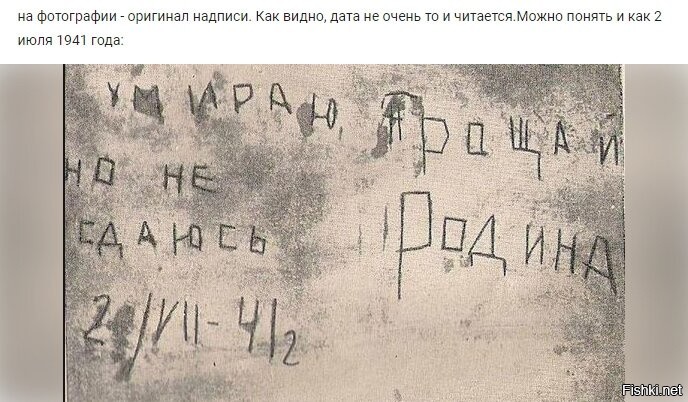 на фотографии - оригинал надписи. Как видно, дата не очень то и читается.Можно понять и как 2
июля 1941 года:
УМИРАЮ,
НО НЕ
СДАЮСЬ
Прощай
Родина
/VII-41г
Fishki.net